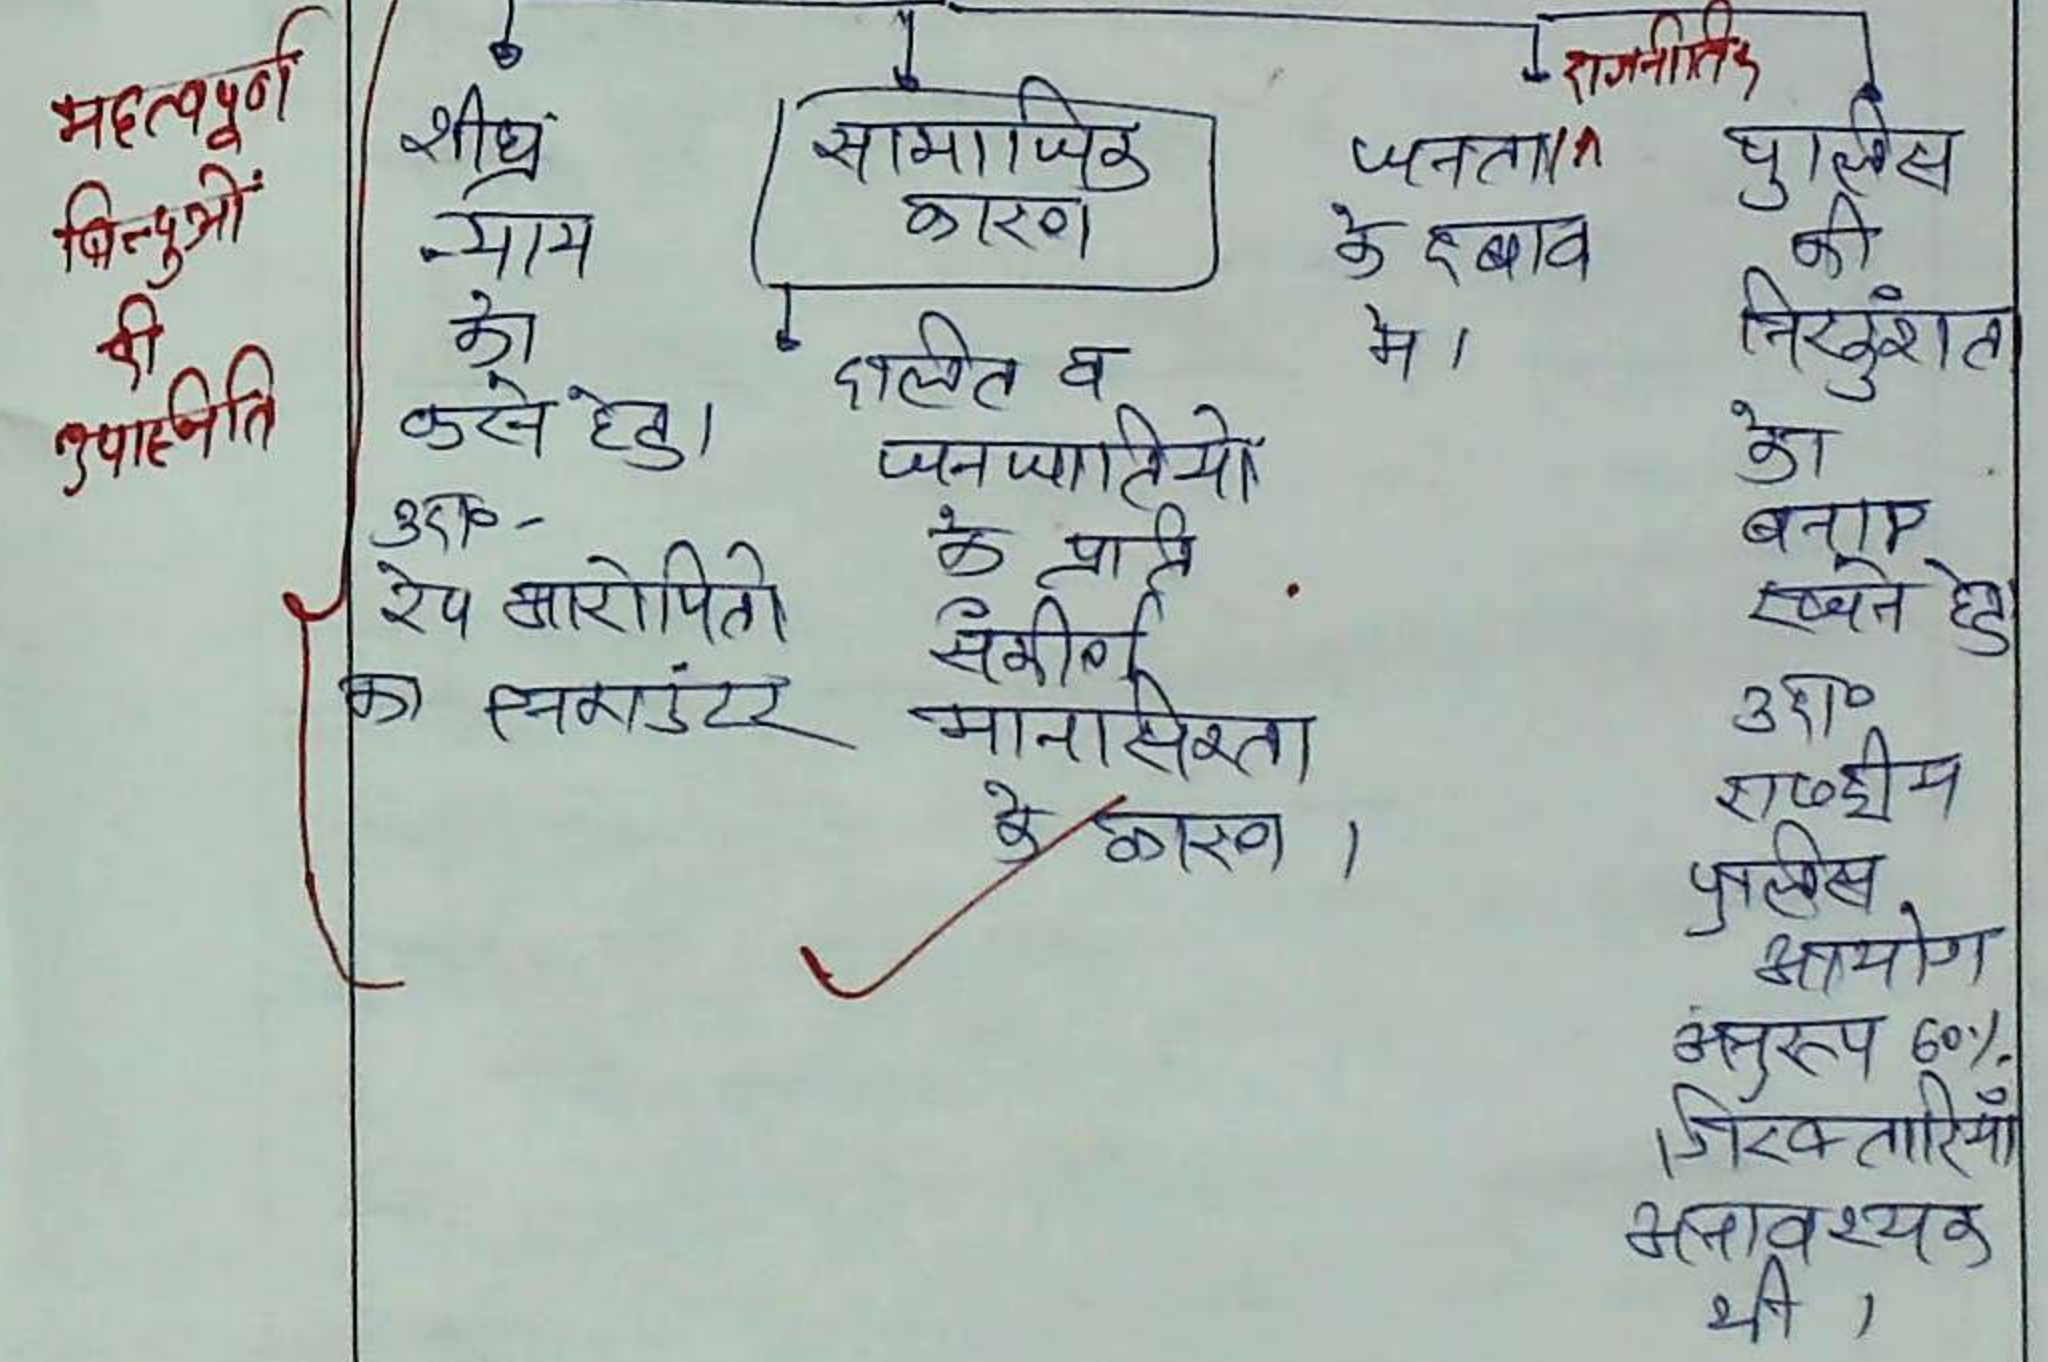 महत्वपूर्ण
बिन्दुओं
की
उपस्थिति
शीघ्र
न्याय
को
करने हेतु।
उदा०-
रेप आरोपितो
का एनकाउंटर
सामाजिक
कारण
दलित व
जनजातियों
के प्रति
संकीर्ण
मानसिकता
के कारण ।
राजनीतिक
जनता/^
के दबाव
मे ।
पुलिस
की
निरकुंशता
को
बनाए
रखने हेतु
उदा०
राष्ट्रीय
पुलिस
आयोग
अनुरूप 60%
गिरफ्तारियाँ
अनावश्यक
थी ।